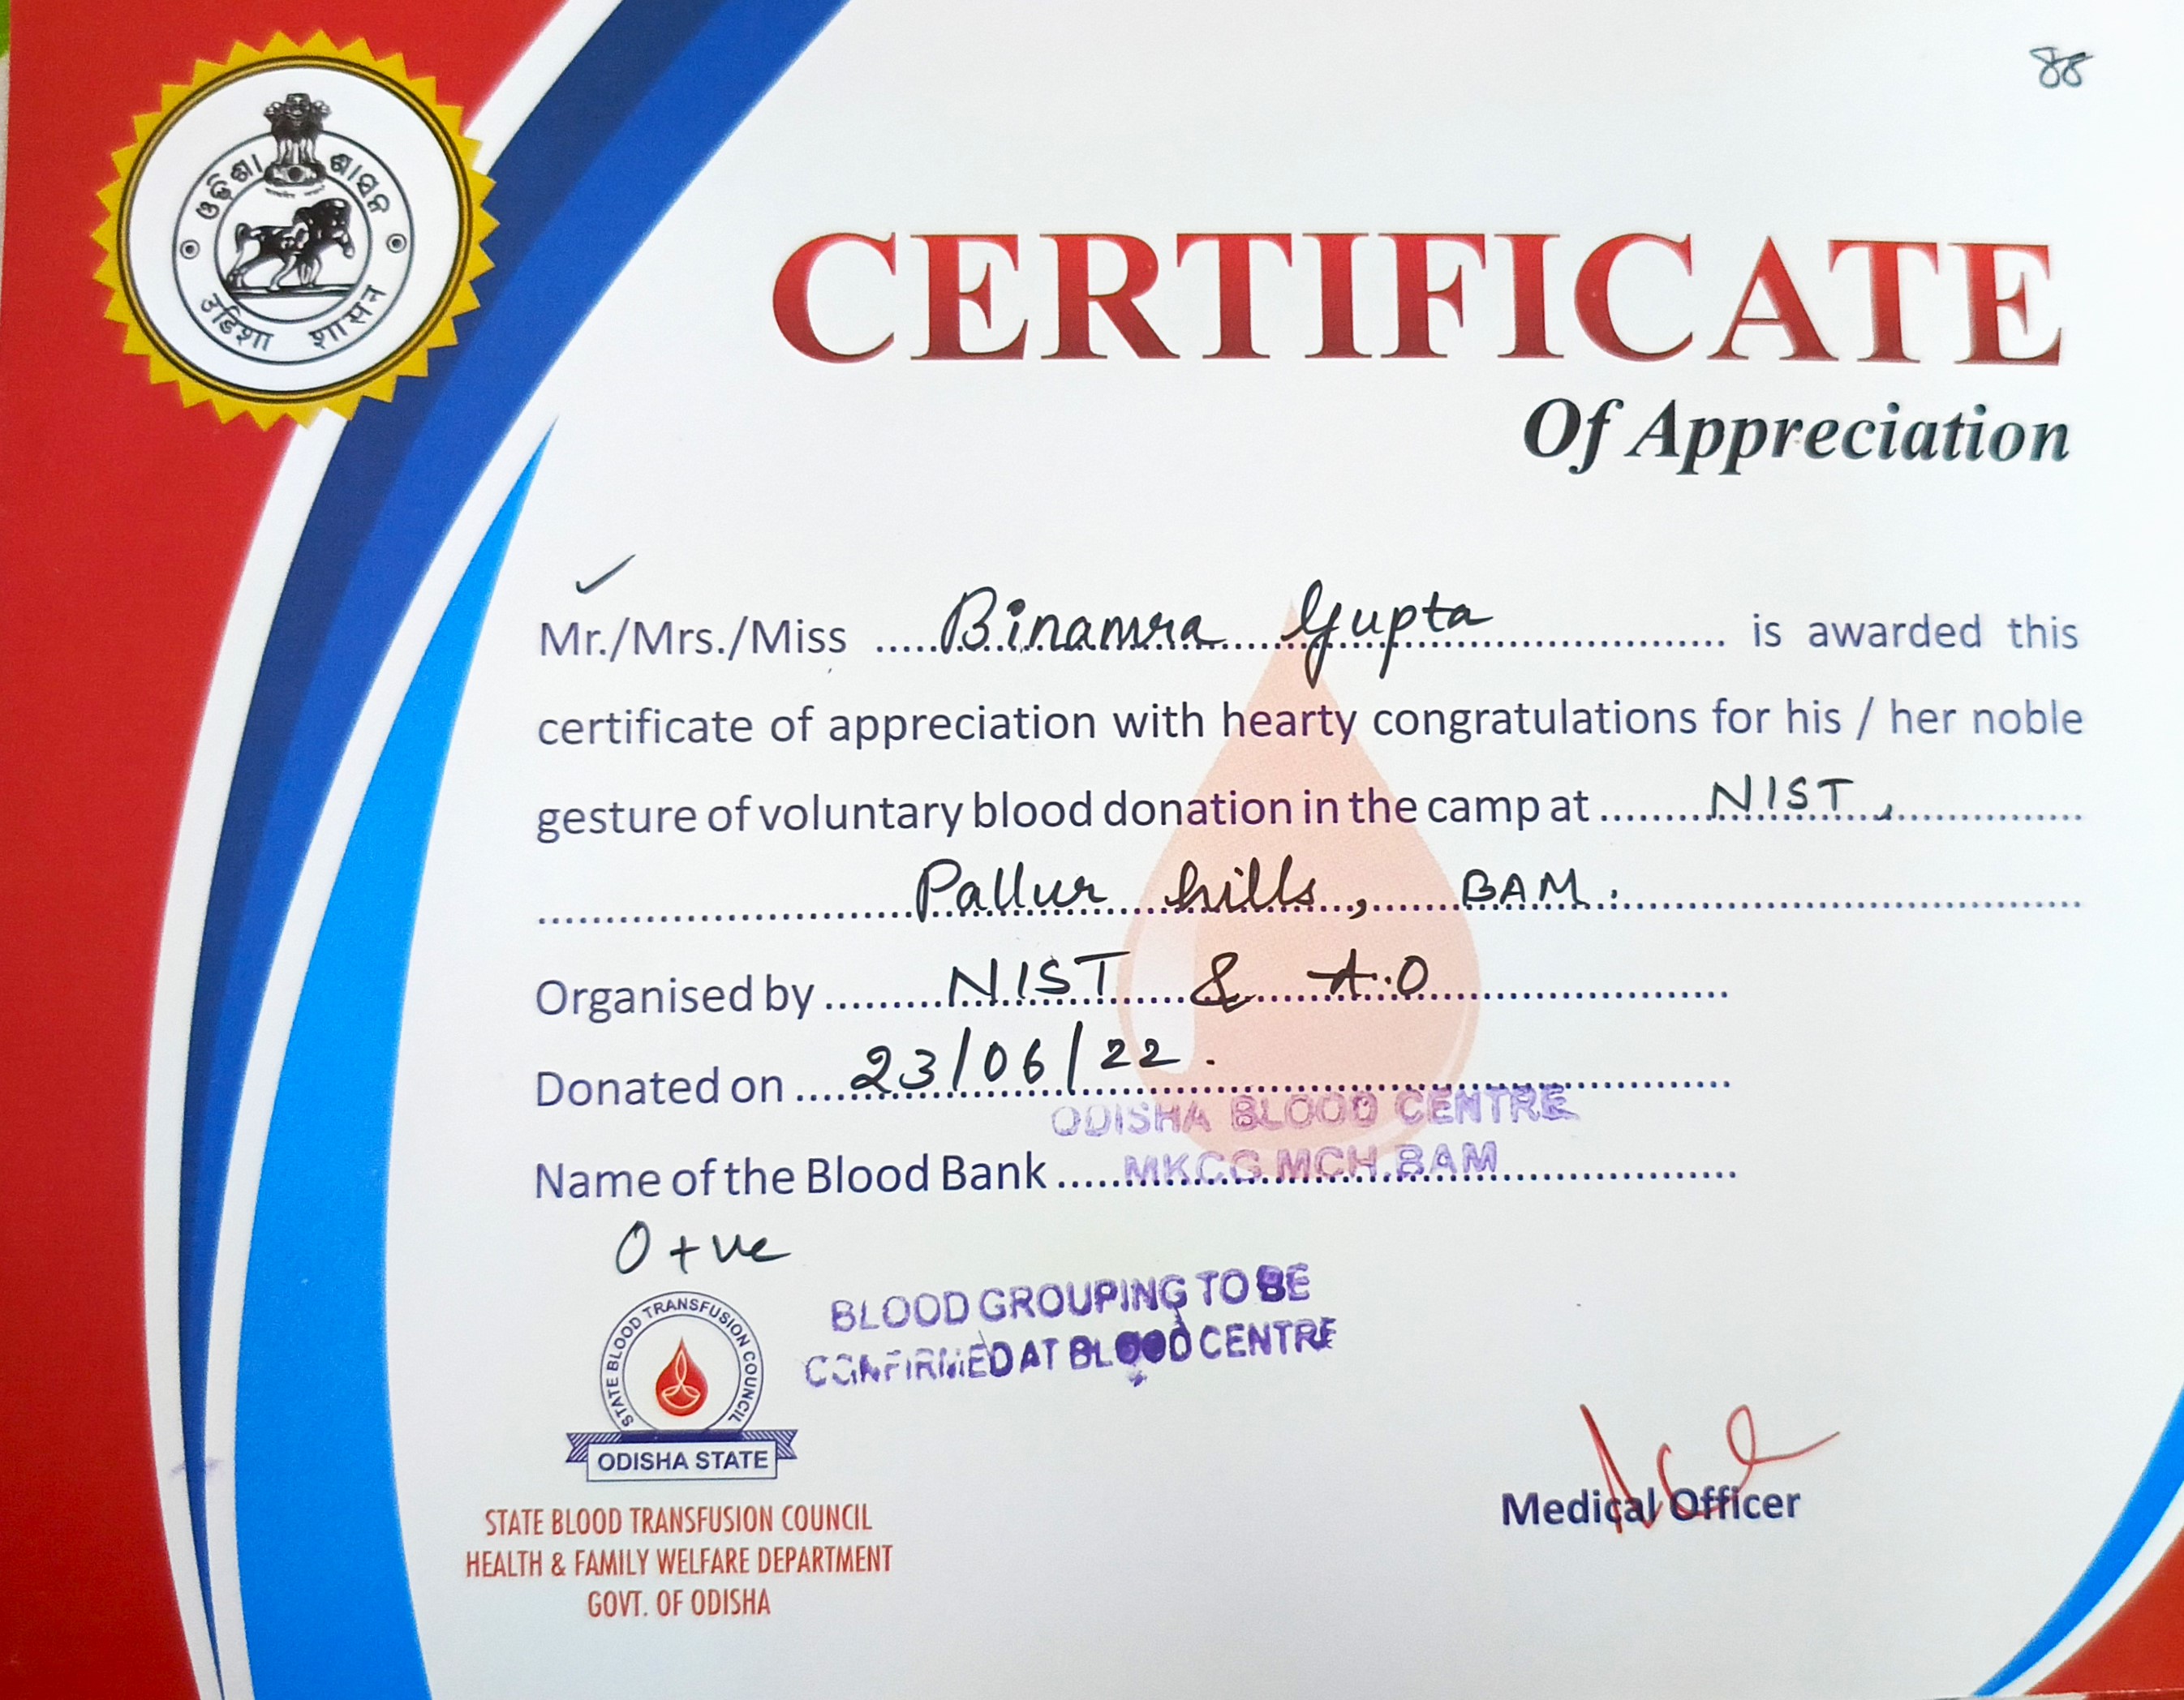 88
ଓଡ଼ିଶା ଶାସନ
उड़िशा शासन
CERTIFICATE
Of Appreciation
Mr./Mrs./Miss .....Binamra Gupta..... is awarded this
certificate of appreciation with hearty congratulations for his / her noble
gesture of voluntary blood donation in the camp at .....NIST,.....
.....Pallur hills, BAM......
Organised by .....NIST & A.O.....
Donated on ....23/06/22.....
ODISHA BLOOD CENTRE
Name of the Blood Bank .....MKCG MCH.BAM.....
O +ve
BLOOD GROUPING TO BE
CONFIRMED AT BLOOD CENTRE
STATE BLOOD TRANSFUSION COUNCIL
ODISHA STATE
Medical Officer
STATE BLOOD TRANSFUSION COUNCIL
HEALTH & FAMILY WELFARE DEPARTMENT
GOVT. OF ODISHA